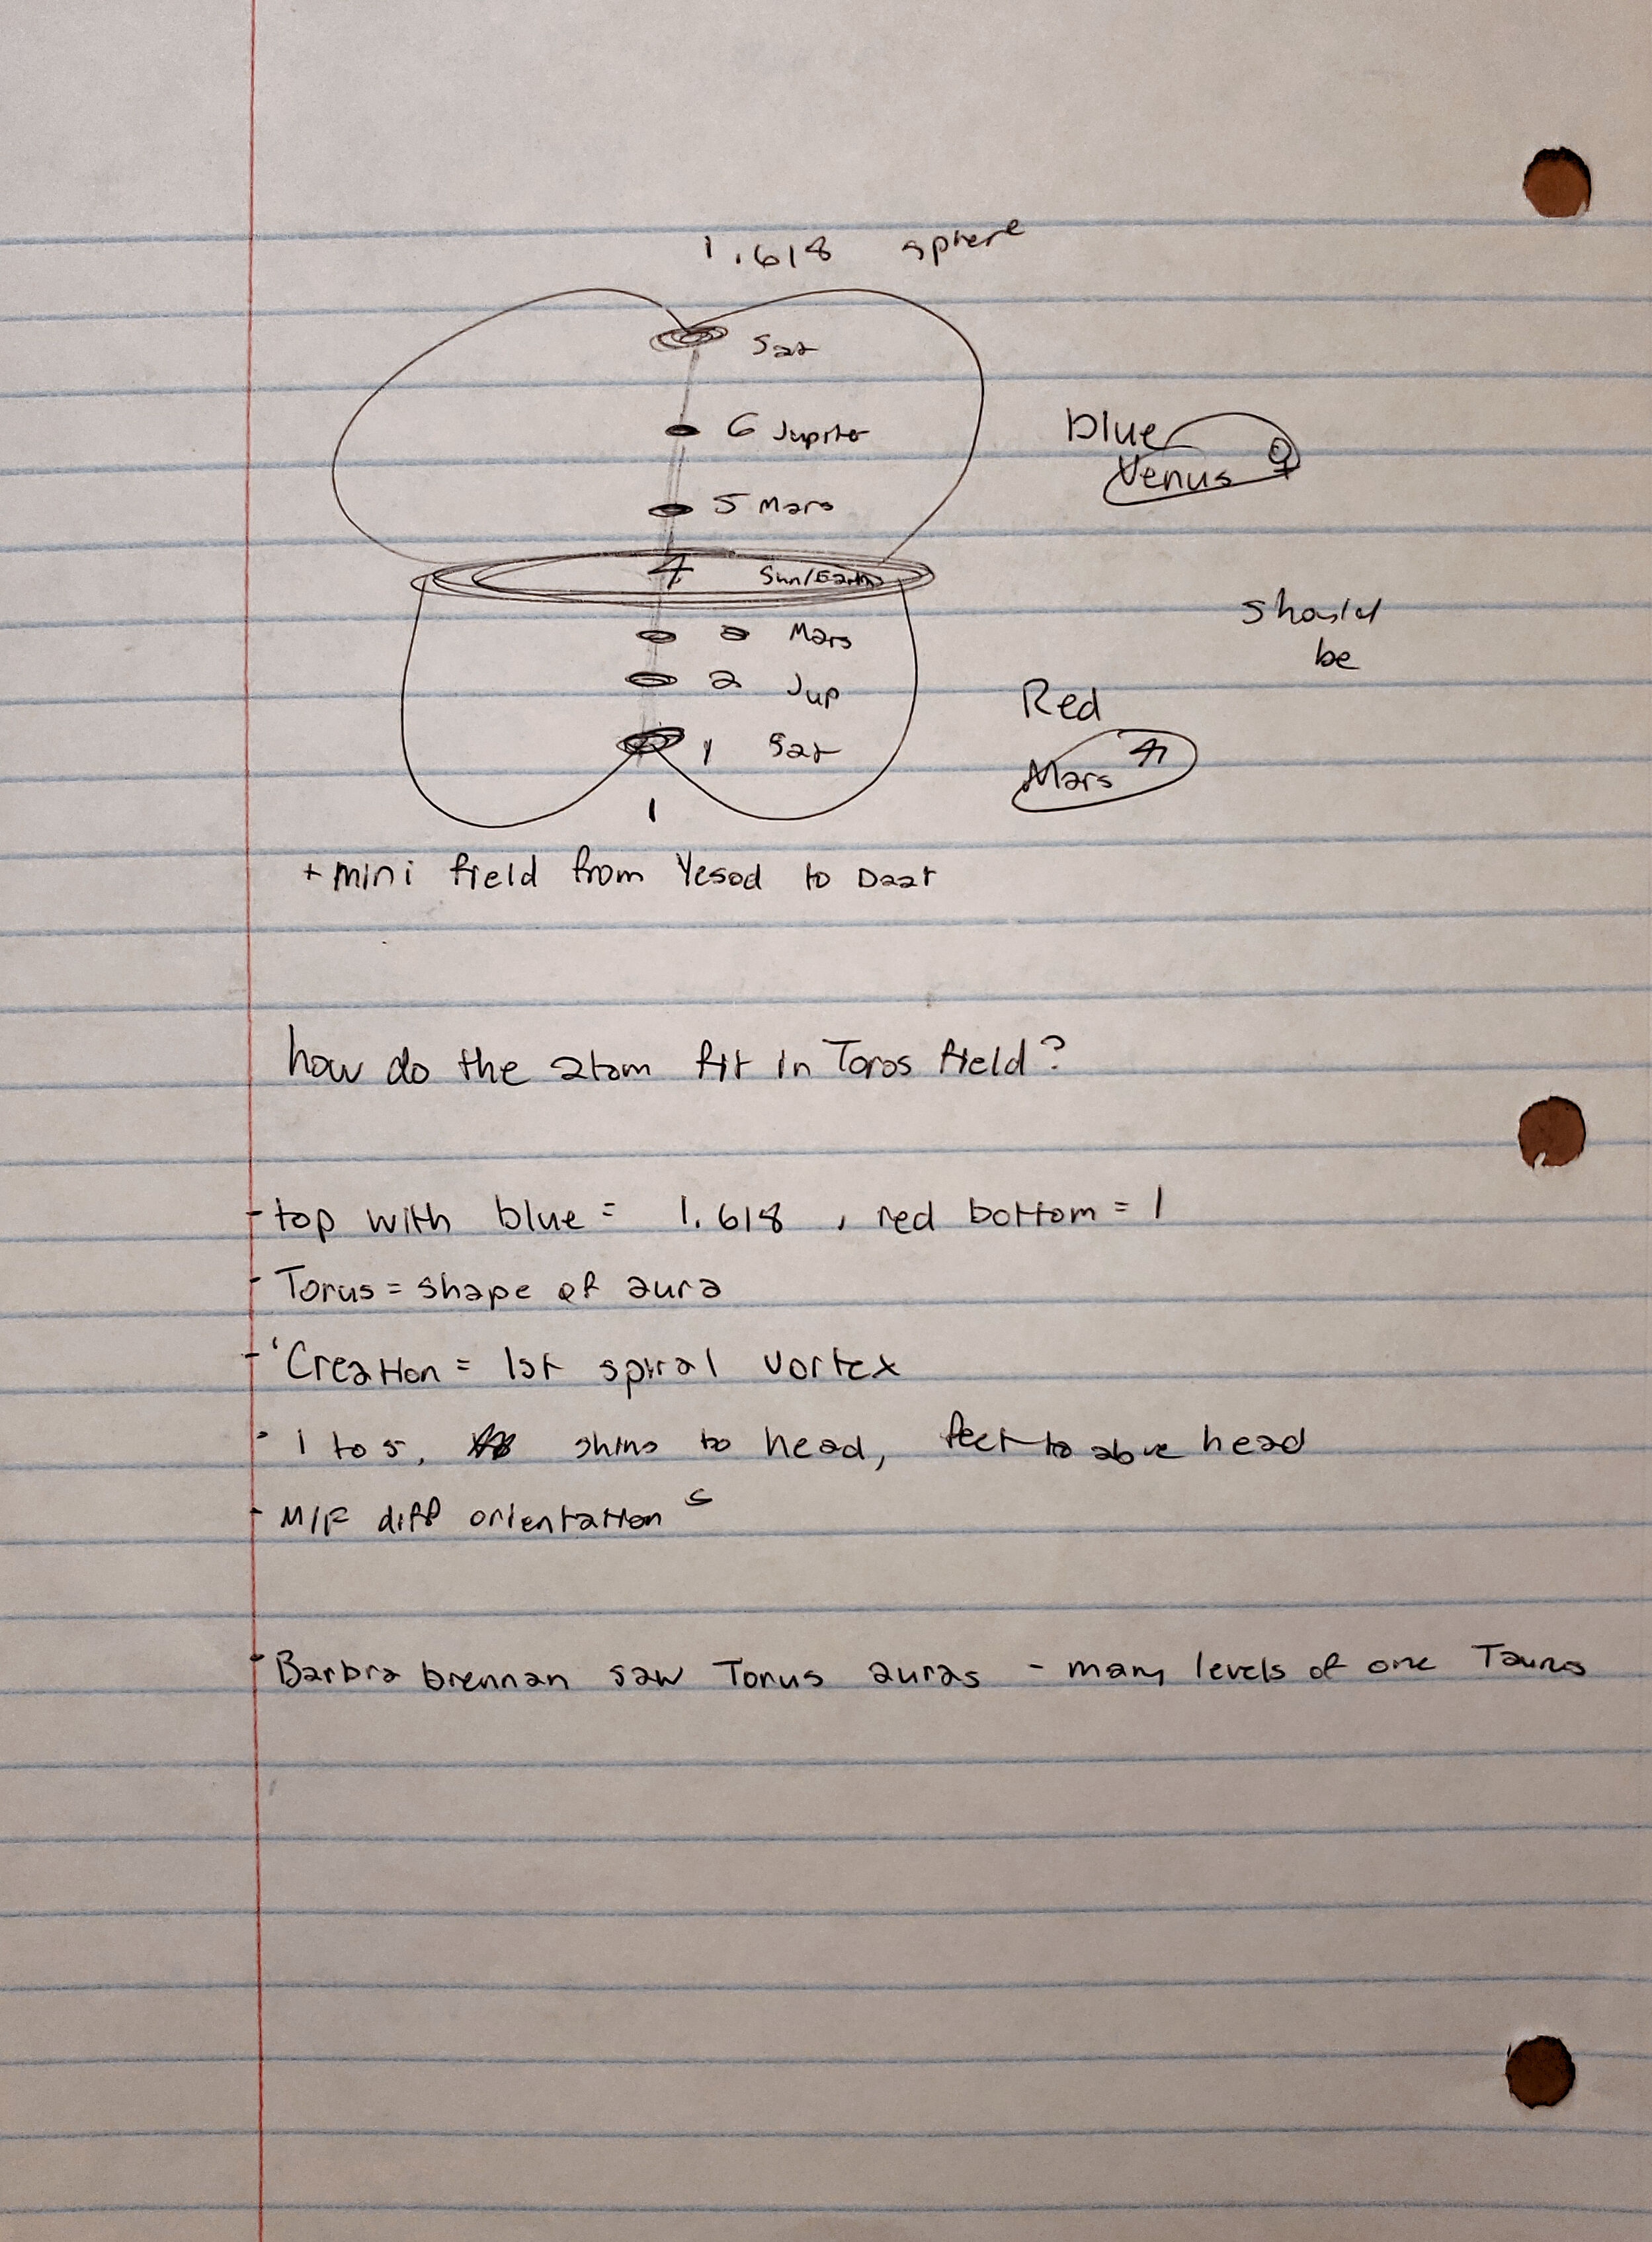 1.618 sphere
Sat
6 Jupiter
blue
Venus ♀
5 Mars
4 Sun/Earth
should
be
3 Mars
2 Jup
Red
1 Sat
Mars
1
+ mini field from Yesod to Daat
how do the atom fit in Toros field?
- top with blue = 1.618, red bottom = 1
- Torus = shape of aura
- 'Creation = 1st spiral vortex
- 1 to 5, shins to head, feet to above head
- M/F diff orientation
- Barbra brennan saw Torus auras - many levels of one